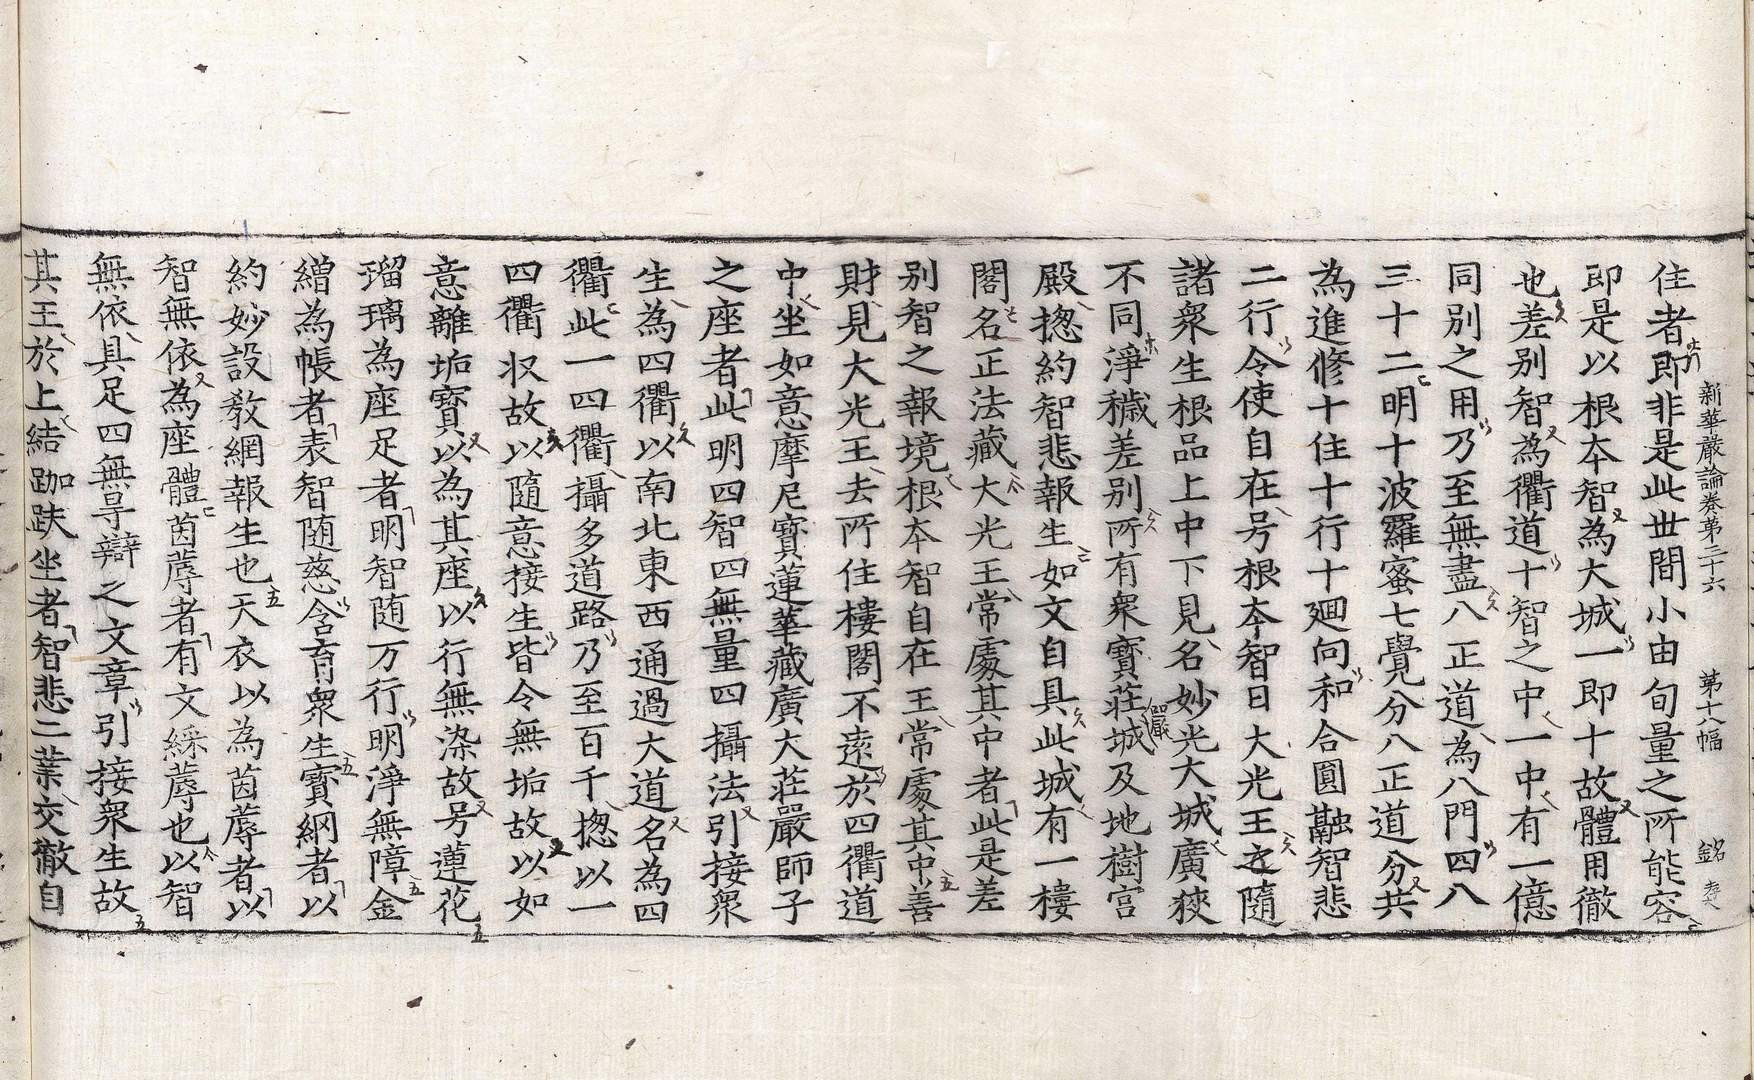 住者即非是此世間小由旬量之所能容
新華嚴論卷第三十六 第十八幅 銘
即是以根本智為大城一即十故體用徹
也差别智為衢道十智之中一中有一億
同别之用乃至無盡八正道為八門四八
三十二明十波羅蜜七覺分八正道分共
為進修十住十行十廻向和合圓融智悲
二行令使自在号根本智日大光王之隨
諸衆生根品上中下見名妙光大城廣狹
不同淨穢差别所有衆寶莊城及地樹宮
殿揔約智悲報生如文自具此城有一樓
閣名正法藏大光王常處其中者此是差
别智之報境根本智自在王常處其中善
財見大光王去所住樓閣不遠於四衢道
中坐如意摩尼寶蓮華藏廣大莊嚴師子
之座者此明四智四無量四攝法引接衆
生為四衢以南北東西通過大道名為四
衢此一四衢攝多道路乃至百千揔以一
四衢収故以隨意接生皆令無垢故以如
意離垢寶以為其座以行無染故号蓮花
瑠璃為座足者明智随万行明淨無障金
繒為帳者表智随慈含育衆生寶網者以
約妙設教網報生也天衣以為茵蓐者以
智無依為座體茵蓐者有文綵蓐也以智
無依具足四無㝵辯之文章引接衆生故
其王於上結跏趺坐者智悲二業交徹自